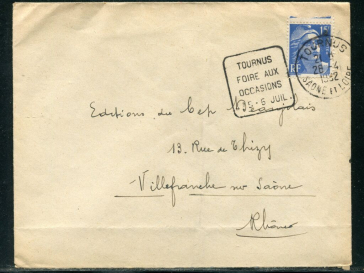 TOURNUS
FOIRE AUX
OCCASIONS
5-6 JUIL.
TOURNUS
1952
SAONE ET LOIRE
RF
Editions du Cep Beaujolais
13. Rue de Thizy
Villefranche sur Saône
Rhône